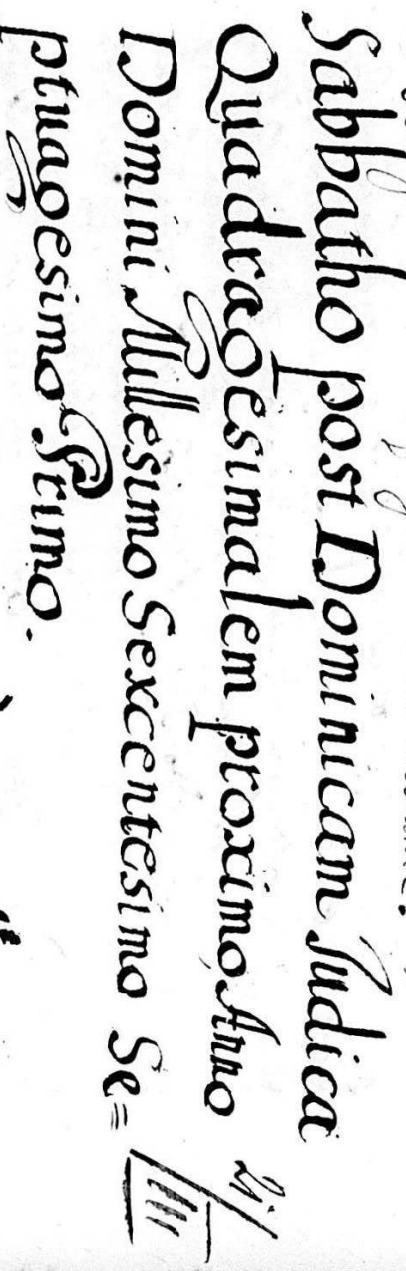 Sabbatho post Dominicam Judica
Quadragesimalem proximo Anno
Domini Millesimo Sexcentesimo Se=
ptuagesimo Primo.
21/III